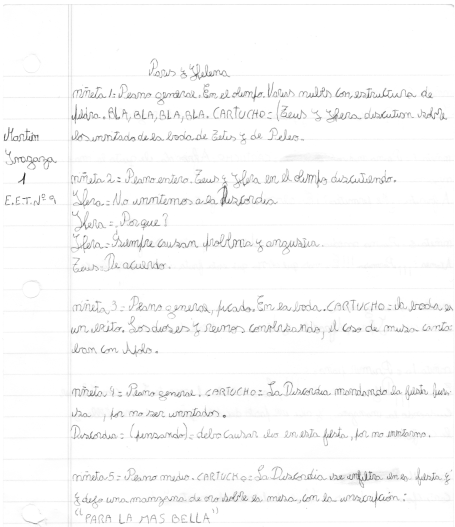 Paris y Helena
viñeta 1= Plano general. En el olimpo. Varias nubes con estructura de
piedra. BLA, BLA, BLA, BLA. CARTUCHO= (Zeus y Hera discutian sobre
los invitados de la boda de Tetis y de Peleo.
Martin
Iragaza
1
E.E.T. Nº 9
viñeta 2= Plano entero. Zeus y Hera en el olimpo discutiendo.
Hera= No invitemos a la Discordia
Hera= ¿Porque?
Hera= Siempre causan problema y angustia.
Zeus= De acuerdo.
viñeta 3= Plano general, picado. En la boda. CARTUCHO= la boda es
un exito. Los dioses y reinos conversando, el coso de musa canta
ban con Apolo.
viñeta 4= Plano general. CARTUCHO= La Discordia mirandando la fiesta
, por no ser invitados.
Discordia= (pensando)= debo causar en esta fiesta, por no invitarme.
viñeta 5= Plano medio. CARTUCHO= La Discordia se infiltra en la fiesta y
y dejo una manzana de oro sobre la mesa, con la inscripción:
"PARA LA MAS BELLA"